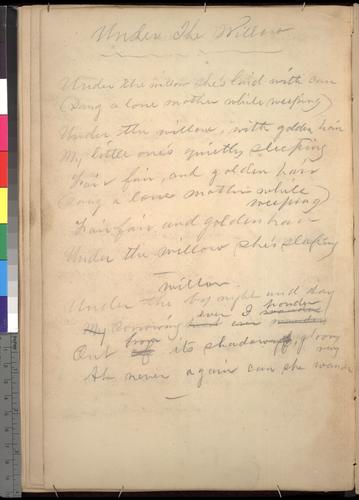 Under The Willow
Under the willow she's laid with care
(Sang a lone mother while weeping)
Under the willow, with golden hair
My little one's quietly sleeping
Fair fair, and golden hair
(Sang a lone mother while
weeping)
Fair fair and golden hair
Under the willow she's sleeping
willow
Under the by night and day
ever I ponder
My sorrowing ever
from
Out its shadows, gloomy
way
Ah never again can she wander